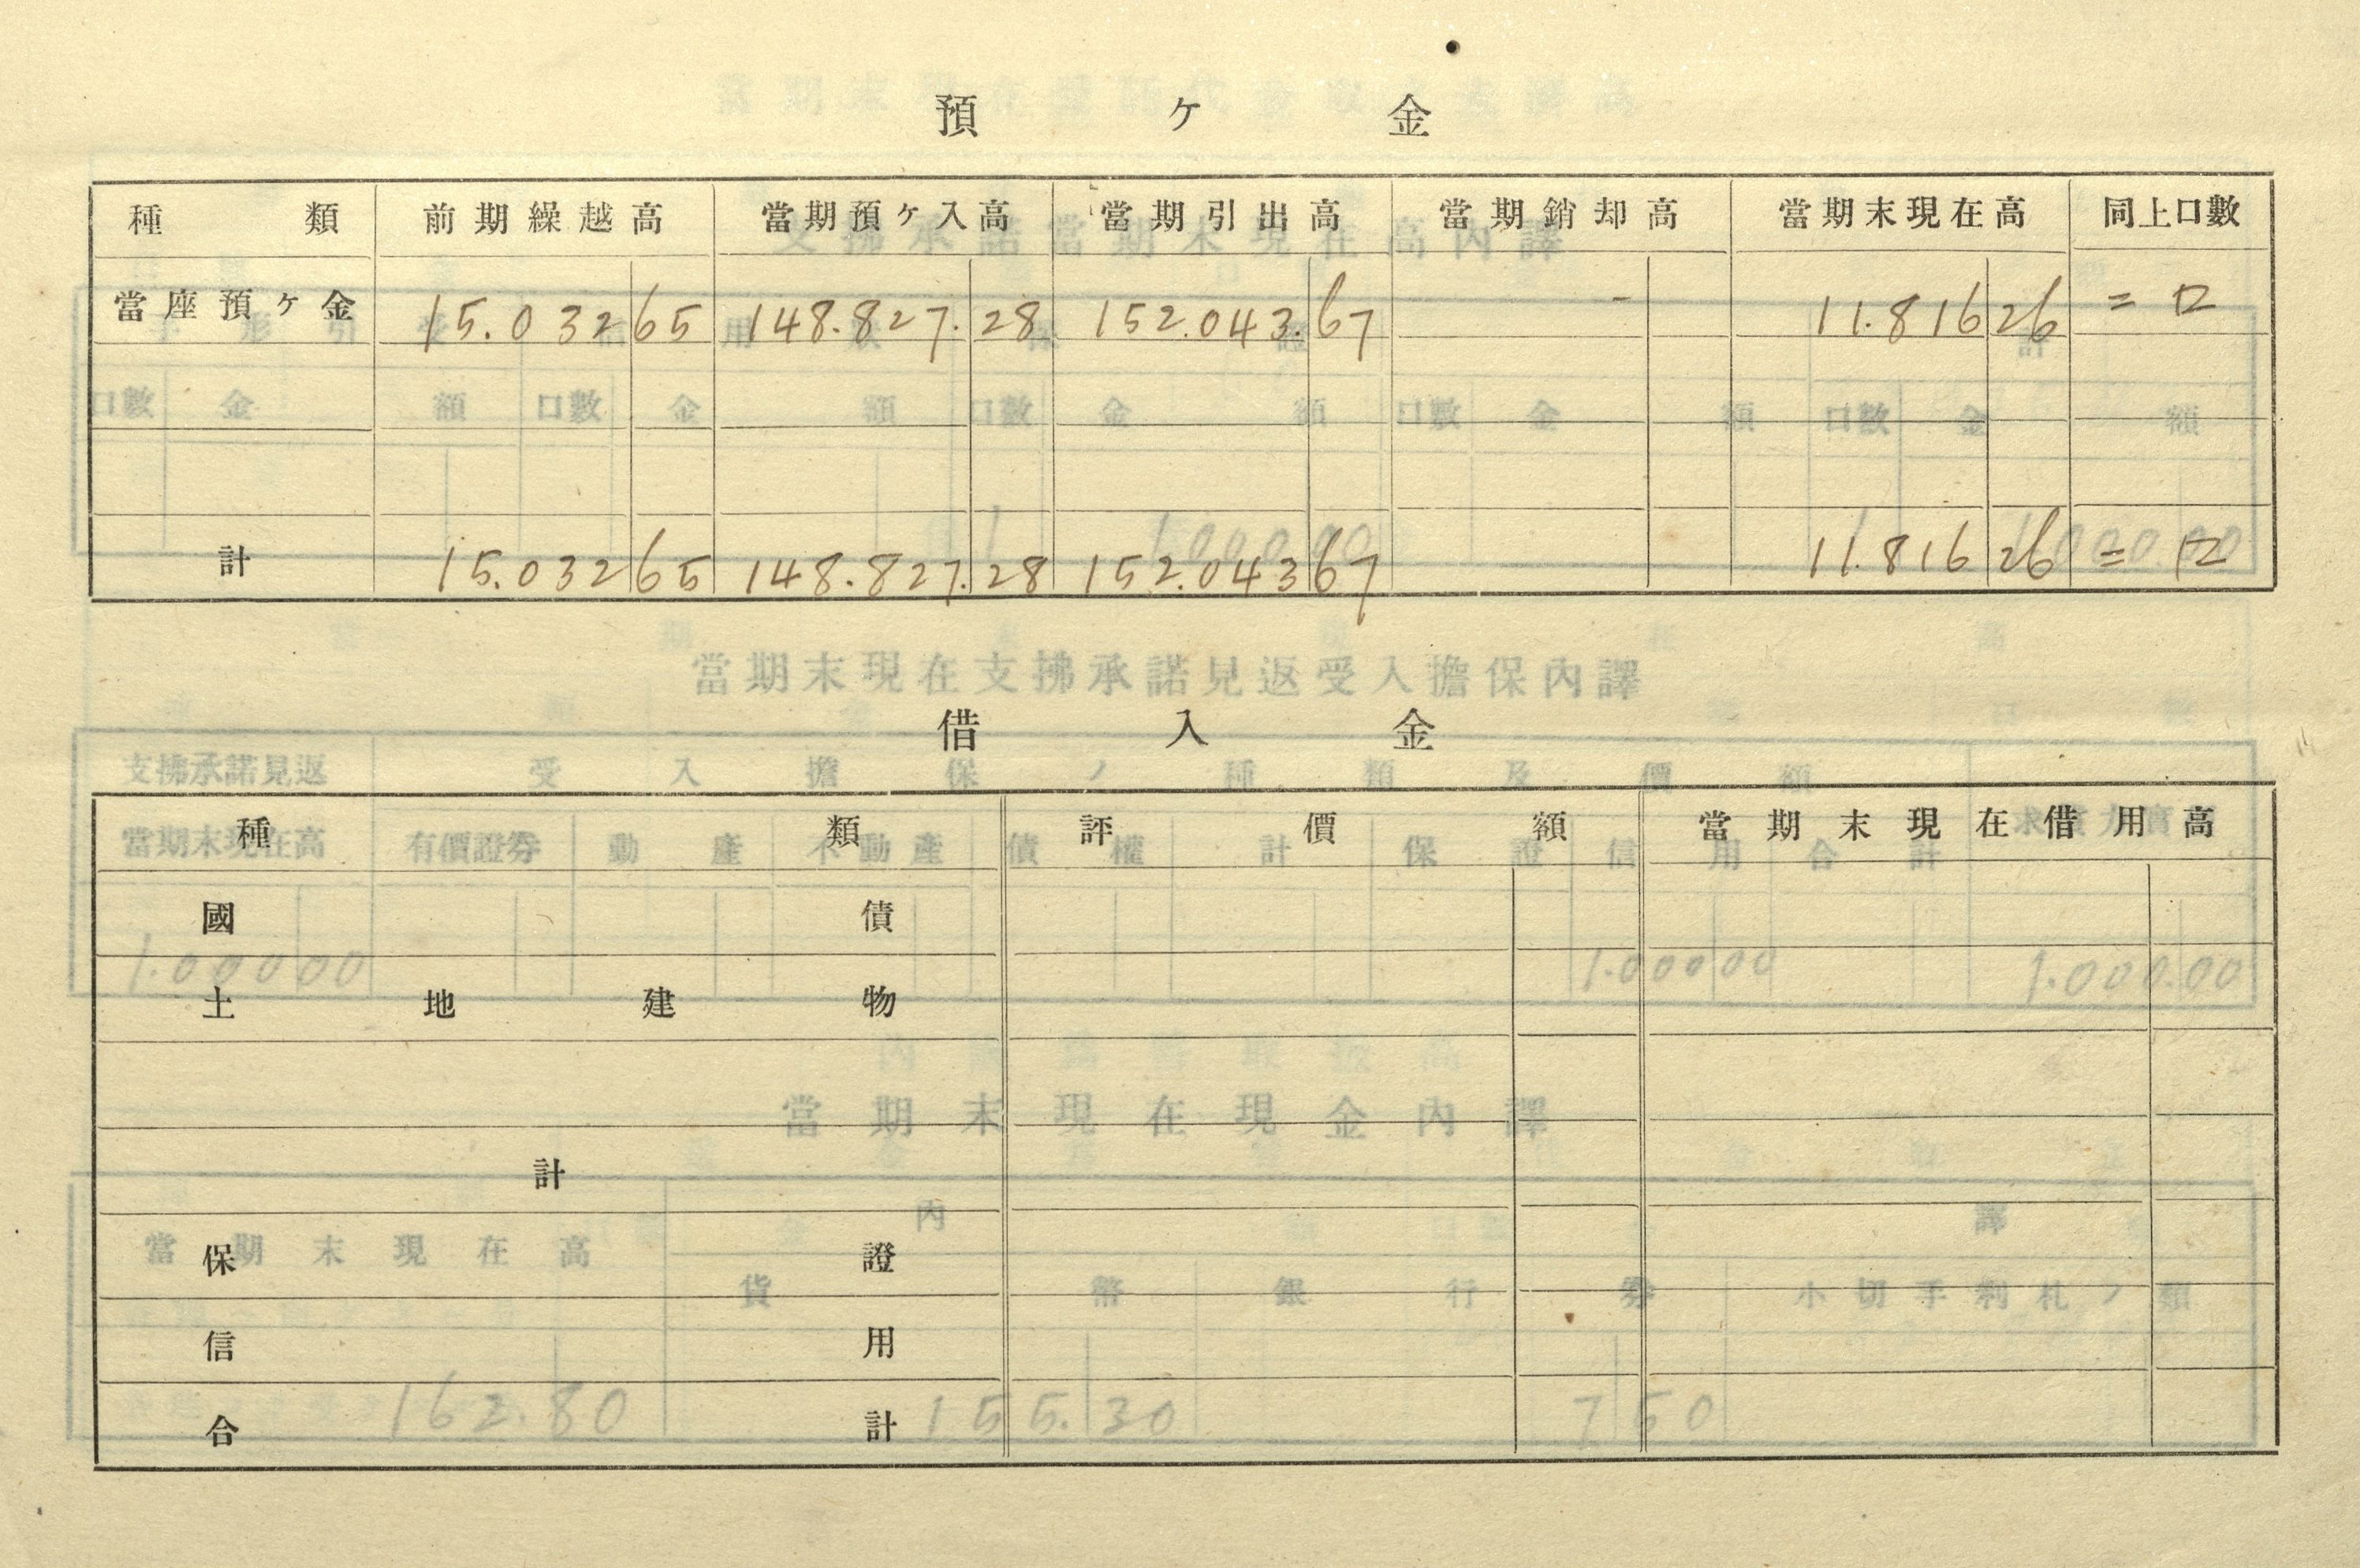 預ケ金
種類 前期繰越高 當期預ケ入高 當期引出高 當期銷却高 當期末現在高 同上口數
當座預ケ金 15.032 65 148.827. 28 152.043. 67 - 11.816 26 二口
計 15.032 65 148.827. 28 152.043 67 11.816 26 二口
當期末現在支拂承諾見返受入擔保內譯
借入金
種類 評價額 當期末現在借用高
國債
土地建物
計
保證
信用
合計